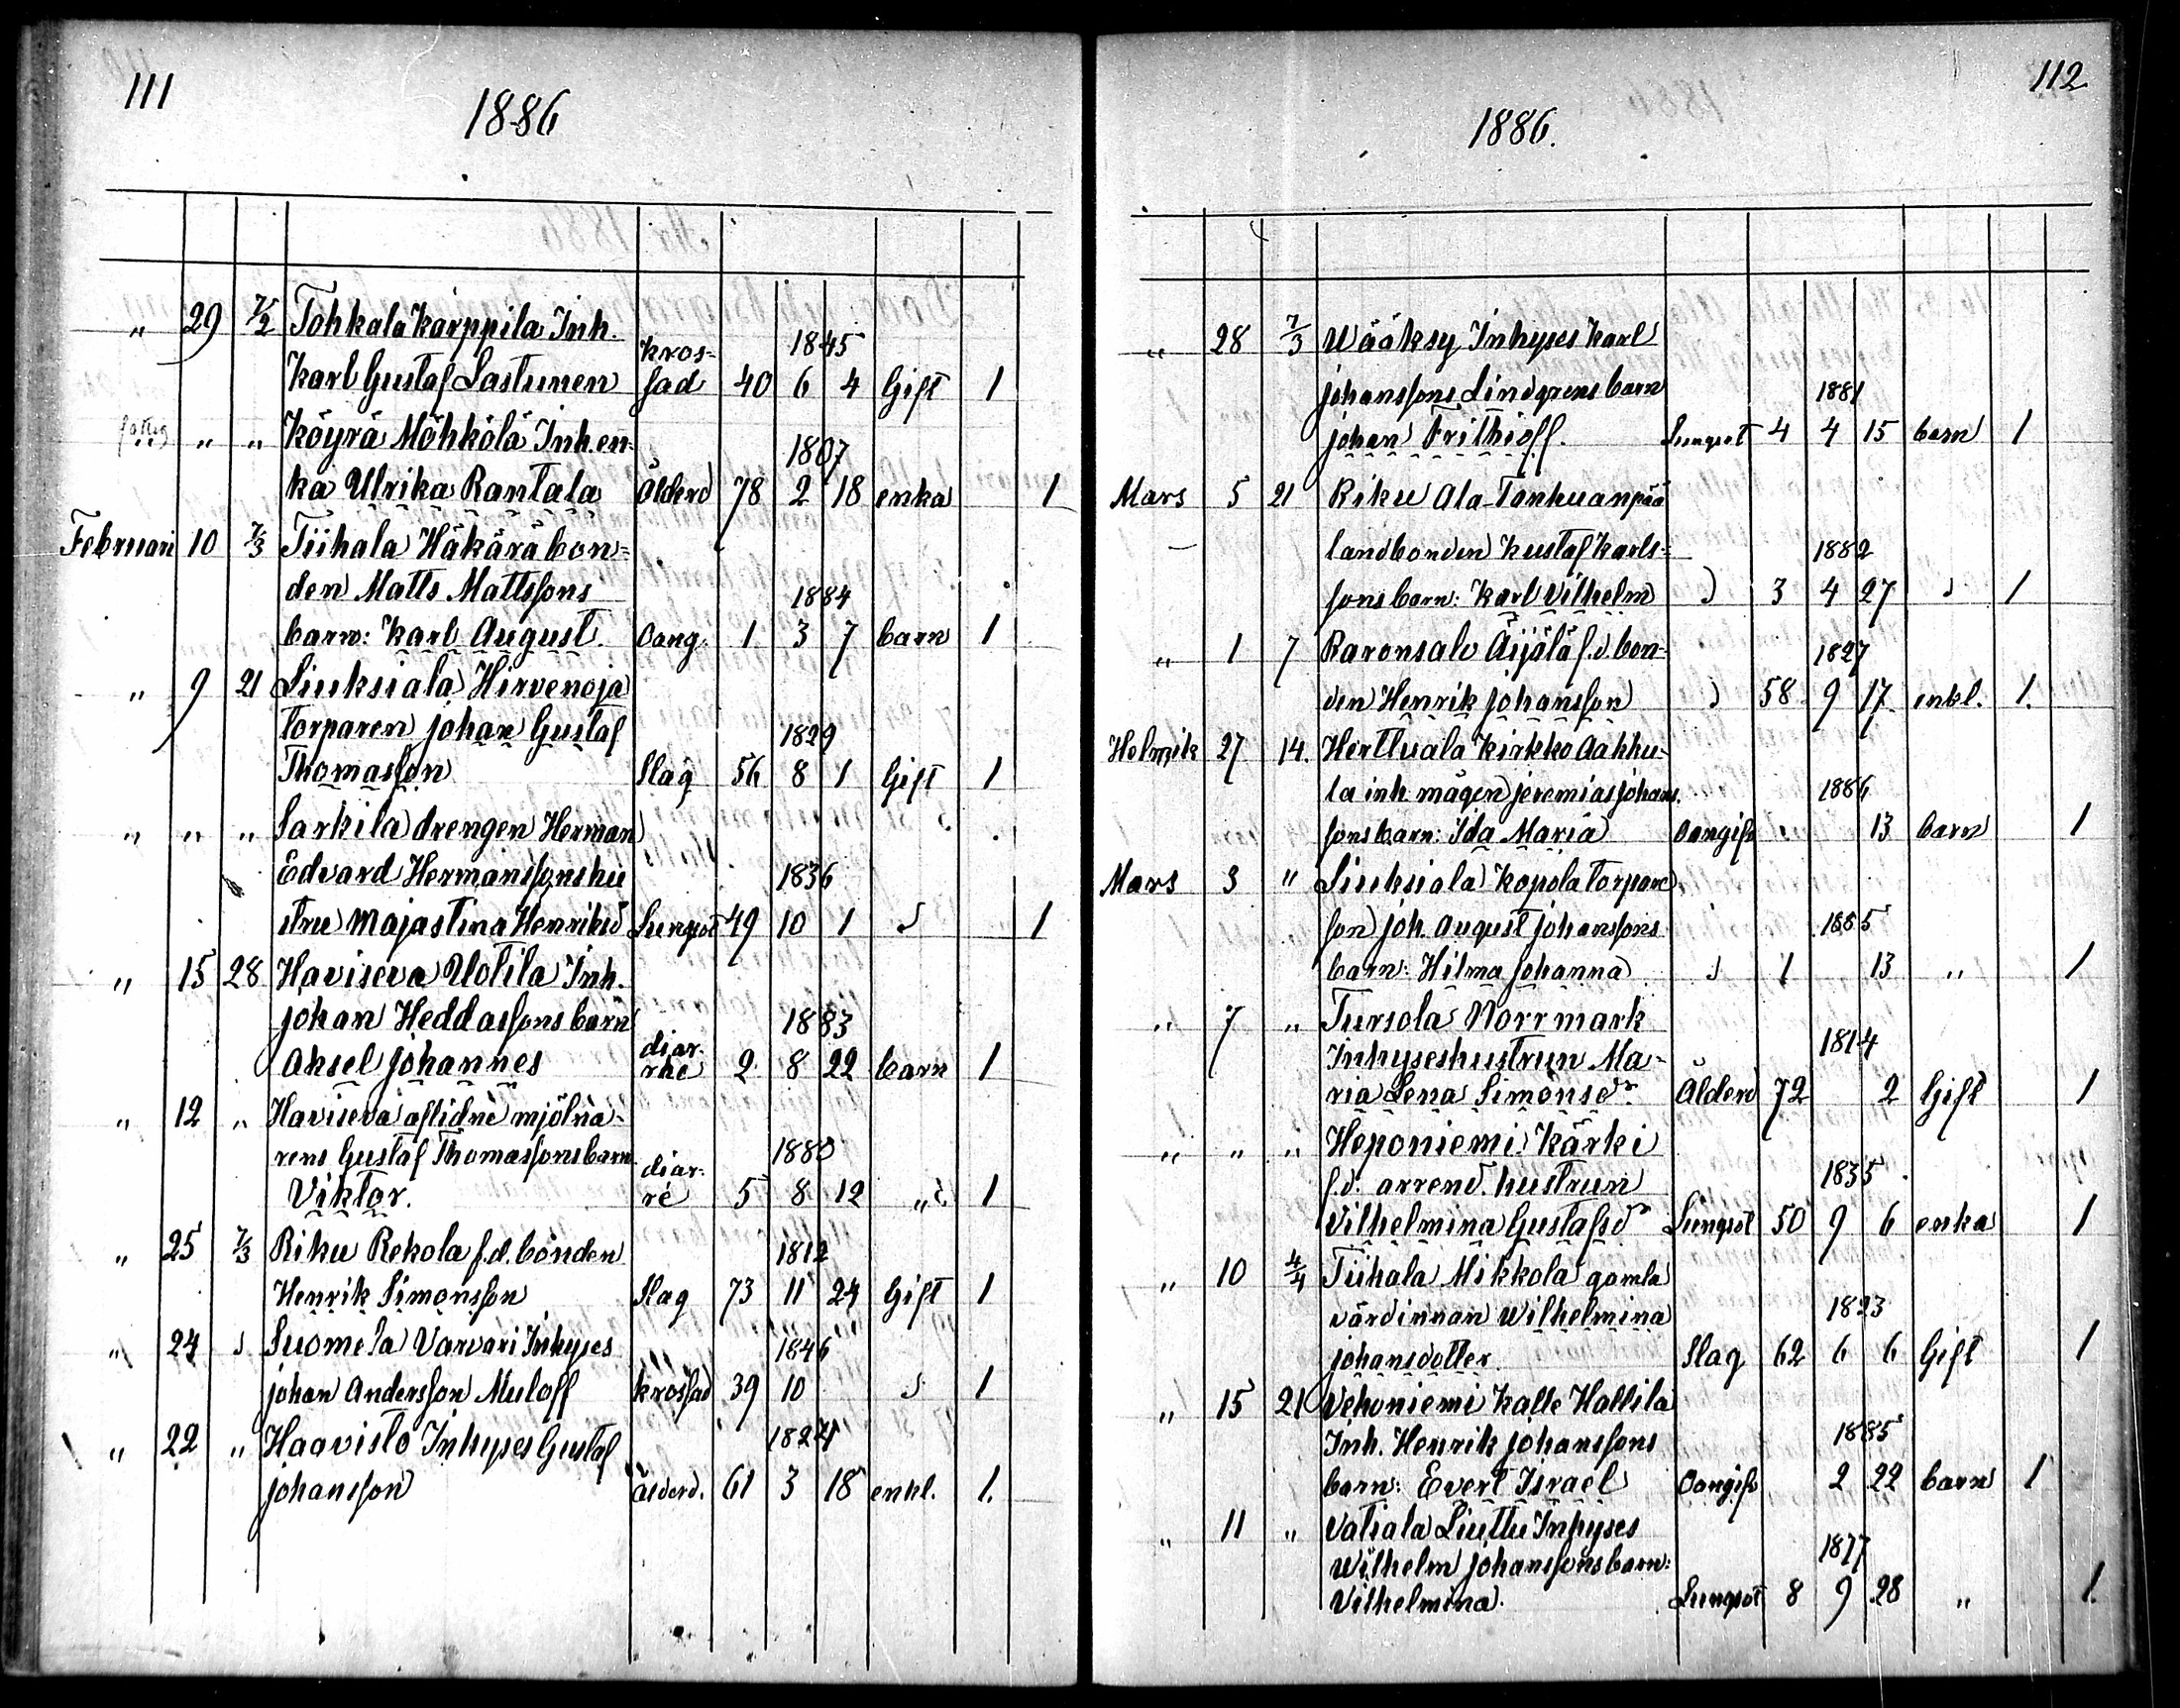 111
1886
" 29 7/2 Tohkala Karppila Inh.
kros- 1845
Karl Gustaf Lastunen sad 40 6 4 Gift 1
" " Köyrä Möhkölä Inh. en-
1807
ka Ulrika Rantala Ålderd 78 2 18 enka 1
Februari 10 7/3 Tiihala Häkärä bon-
den Matts Mattssons 1884
barn: Karl August. Oang. 1 3 7 barn 1
" 9 21 Liuksiala Hirvenoja
torparen Johan Gustaf 1829
Thomasson Slag 56 8 1 Gift 1
" " " Sarkila drengen Herman
Edvard Hermanssons hu 1836
stru Majastina Henriksd Lungsot 49 10 1 d 1
" 15 28 Haviseva Uotila Inh.
Johan Heddassons barn 1883
Aksel Johannes diar-rhe 2 8 22 barn 1
" 12 " Haviseva aflidne mjölna-
rens Gustaf Thomassons barn 1880
Viktor. diar-ré 5 8 12 " 1
" 25 7/3 Riku Rekola f.d. bonden 1812
Henrik Simonsson Slag 73 11 24 Gift 1
" 24 d Suomela Varvari Inhyses 1846
Johan Andersson Muloff krossad 39 10 d 1
" 22 " Haavisto Inhyses Gustaf 1824
Johansson Ålderd. 61 3 18 enkl. 1.
112
1886.
" 28 7/3 Wääksy Inhyses Karl
Johanssons Lindgrens barn 1881
Johan Frithioff. Lungsot 4 4 15 barn 1
Mars 5 21 Riku Ala-Tonhuanpää
landbonden Kustaf Karls- 1882
sons barn: Karl Vilhelm d 3 4 27 d 1
" 1 7 Raronsalo Äijälä f.d. bon- 1827
den Henrik Johansson d 58 9 17 enkl. 1.
Helmik 27 14. Herttuala Kirkko Aakku-
la inh. mågen Jeremias Johans. 1886
sons barn: Ida Maria Oangifv 13 barn 1
Mars 3 " Liuksiala Kopola torpare
son Joh. August Johanssons 1885
barn: Hilma Johanna d 1 13 " 1
" 7 " Tursola Norrmark
Inhyseshustrun Ma- 1814
ria Lena Simonsdr. Ålderd 72 2 Gift 1
" " " Heponiemi Kärki
f.d. arrend. hustrun 1835
Vilhelmina Gustafsdr Lungsot 50 9 6 enka 1
" 10 4/4 Tiihala Mikkola gamla
värdinnan Wilhelmina 1823
Johansdotter Slag 62 6 6 Gift 1
" 15 21 Vehoniemi Kalle Hallila
Inh. Henrik Johanssons 1885
barn: Evert Israel Oangifv 2 22 barn 1
" 11 " Vatiala Liuttu Inhyses
Wilhelm Johanssons barn: 1877
Vilhelmina. Lungsot 8 9 28 " 1.